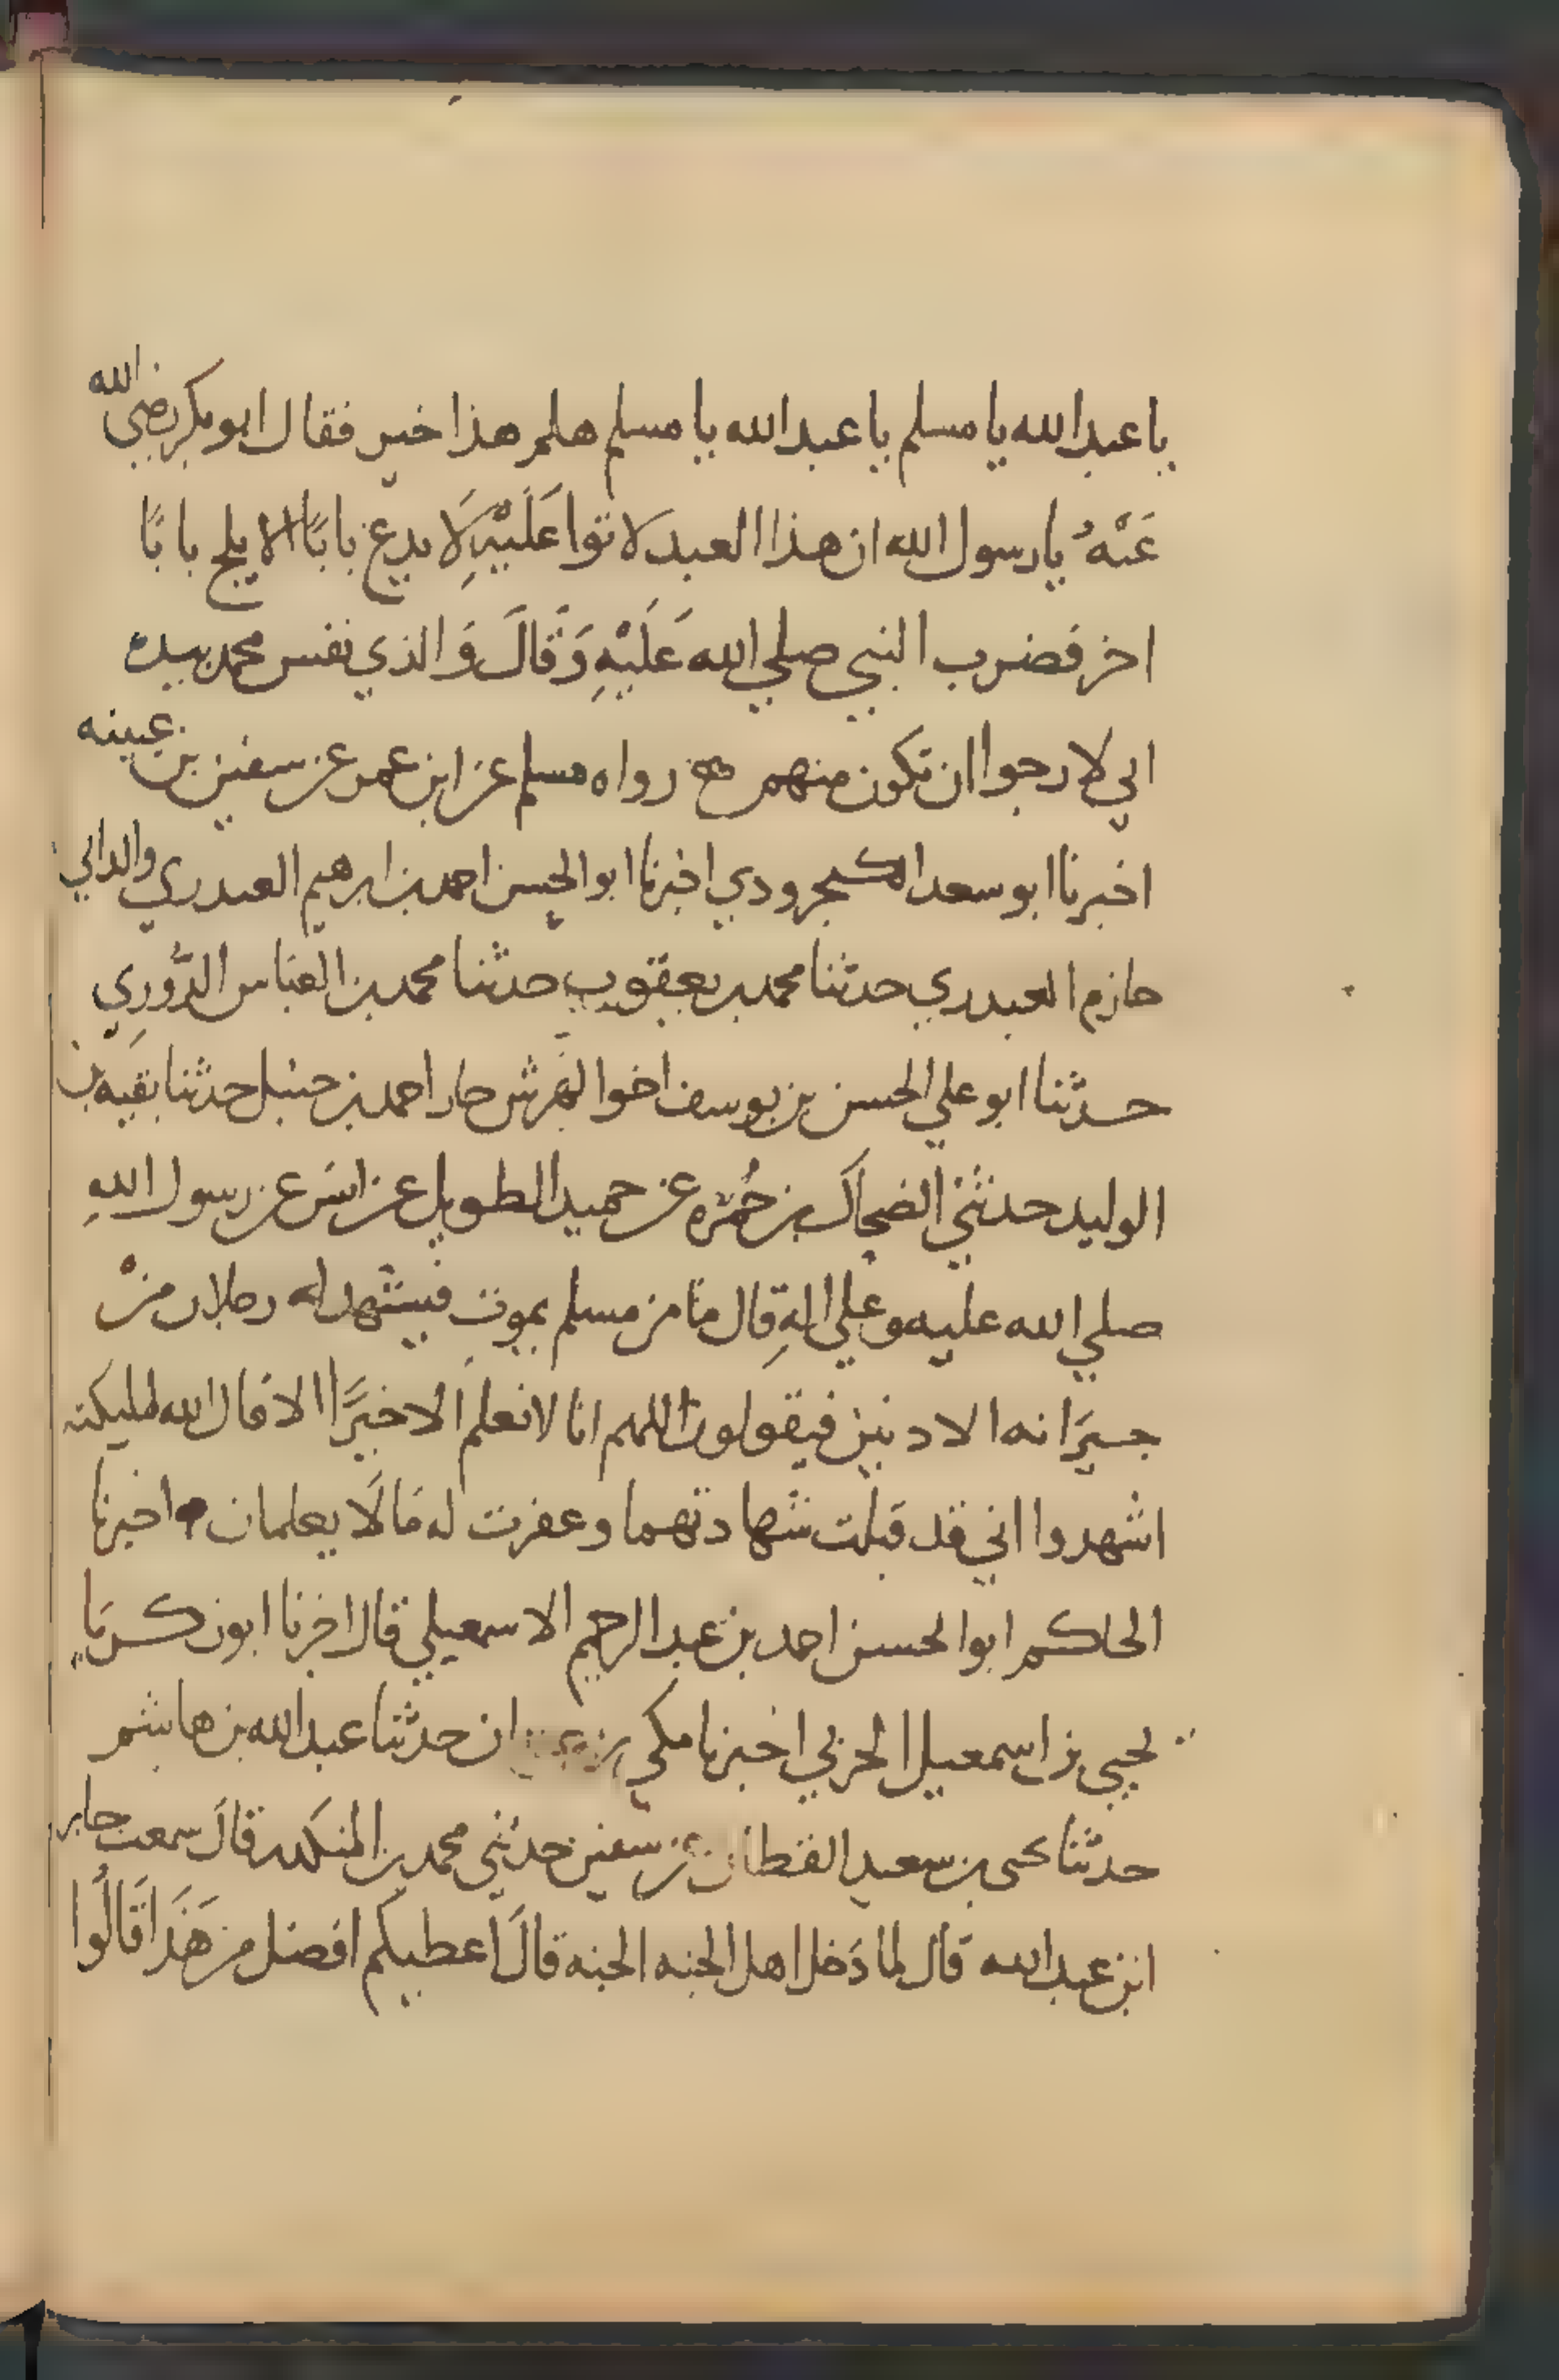 يا عبد الله يا مسلم يا عبد الله يا مسلم هلم هذا خير فقال ابو بكر رضي الله
عَنْهُ يا رسول الله ان هذا العبد لا توا عَلَيْهِ لَا يدع بابًا الا يلج بابًا
اخر فضرب النبي صلي الله عَلَيْهِ وَقَالَ وَالذي نفس محمد بيده
اني لارجوا ان تكون منهم رواه مسلم عن ابن عمر عن سفين بن عيينه
اخبرنا ابو سعد الكنجرودي اخبرنا ابو الحسن احمد بن ابرهيم العبدري والد ابي
حازم العبدري حدثنا محمد بن يعقوب حدثنا محمد بن العباس الدُّورِي
حدثنا ابو علي الحسن بن يوسف اخوا الهرش جار احمد بن حنبل حدثنا بقيه بن
الوليد حدثني الضحاك بن حُمْرَه عن حميد الطويل عن انس عن رسول اللهِ
صلي الله عليه وعلي الهِ قال ما من مسلم يموت فيشهد له رجلان منْ
جيرَانه الادنين فيقولون اللهم انا لا نعلم الا خيرًا الا قال الله لمليكته
اشهدوا اني قد قبلت شهادتهما وغفرت له مَا لَا يعلمان اخبرنا
الحاكم ابو الحسن احمد بن عبد الرحيم الاسمعيلي قال اخبرنا ابو زكريَا
يحيي بن اسمعيل الحربي اخبرنا مكي بن عبدان حدثنا عبد الله بن هاشم
حدثنا يحيى بن سعيد القطان عن سفين حدثني محمد بن المنكدر قال سمعت جابر
ابن عبد الله قال لما دَخل اهل الجنه الجنه قالَ اعطيكم افضل من هَذَا قَالُوا